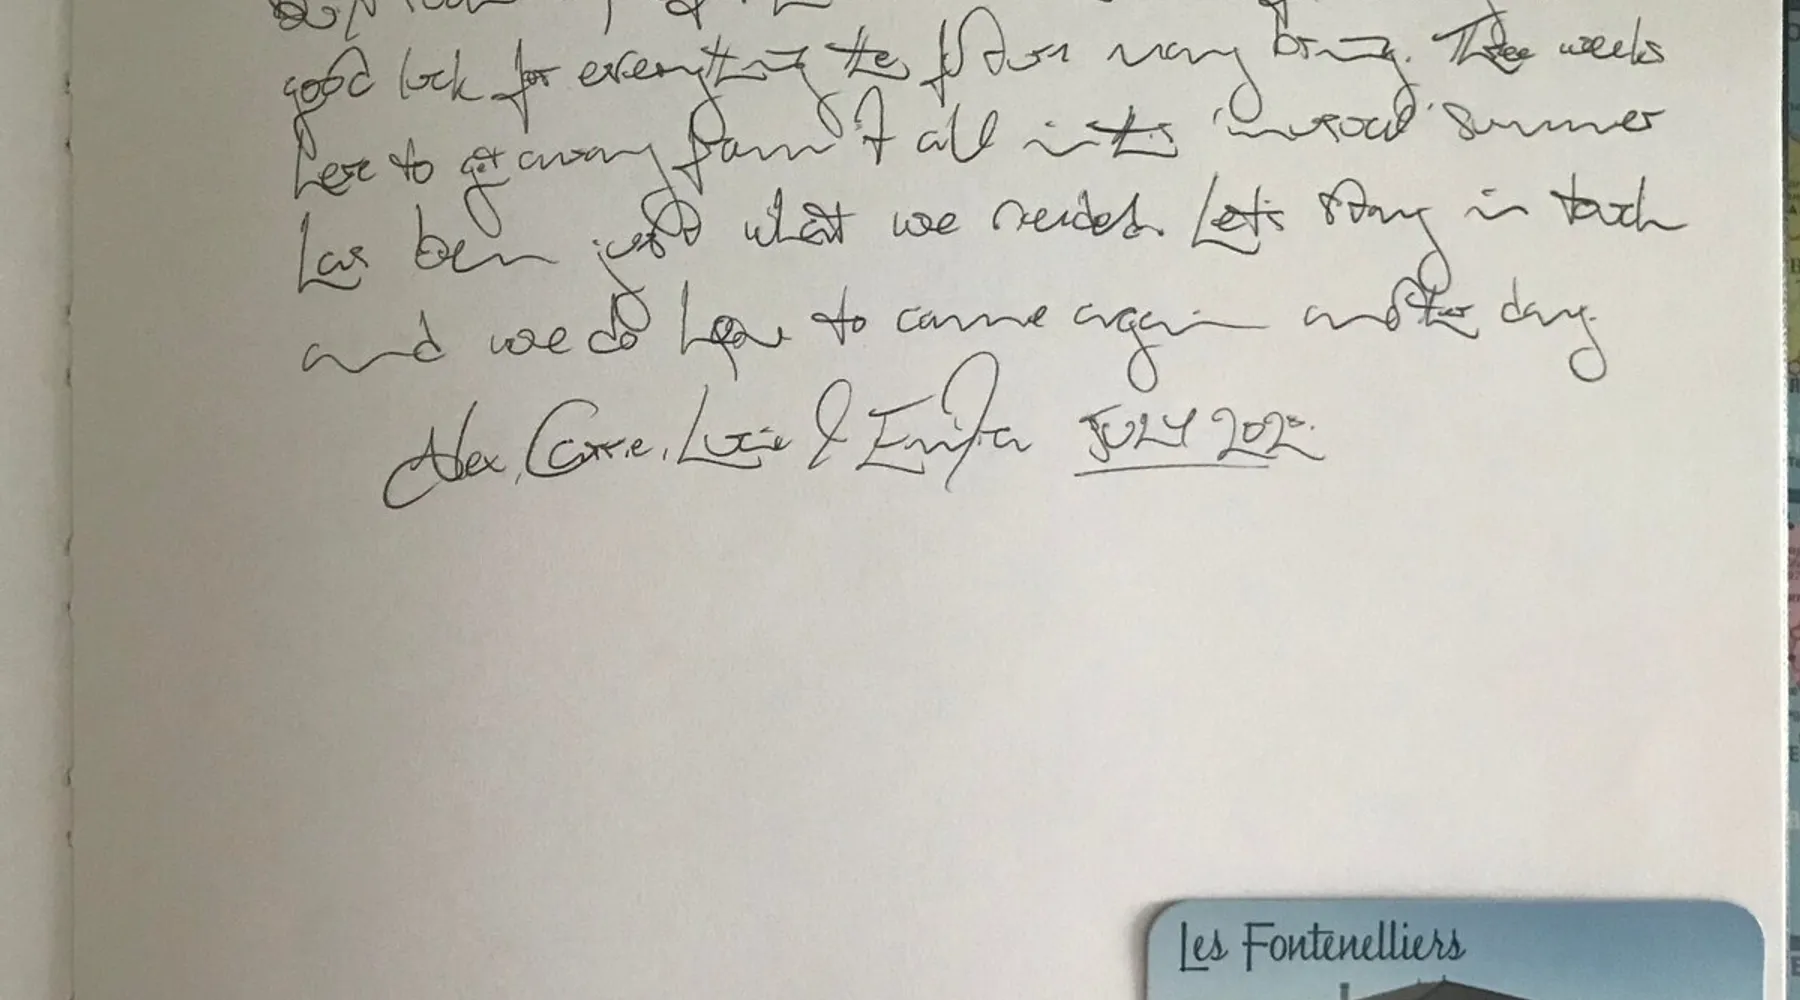 good luck for everything the future may bring. Three weeks
here to get away from it all in this 'unusual' summer
has been just what we needed. Let's stay in touch
and we do hope to come again another day.
Alex, Carrie, Lucie & Emilia JULY 2020.
Les Fontenelliers